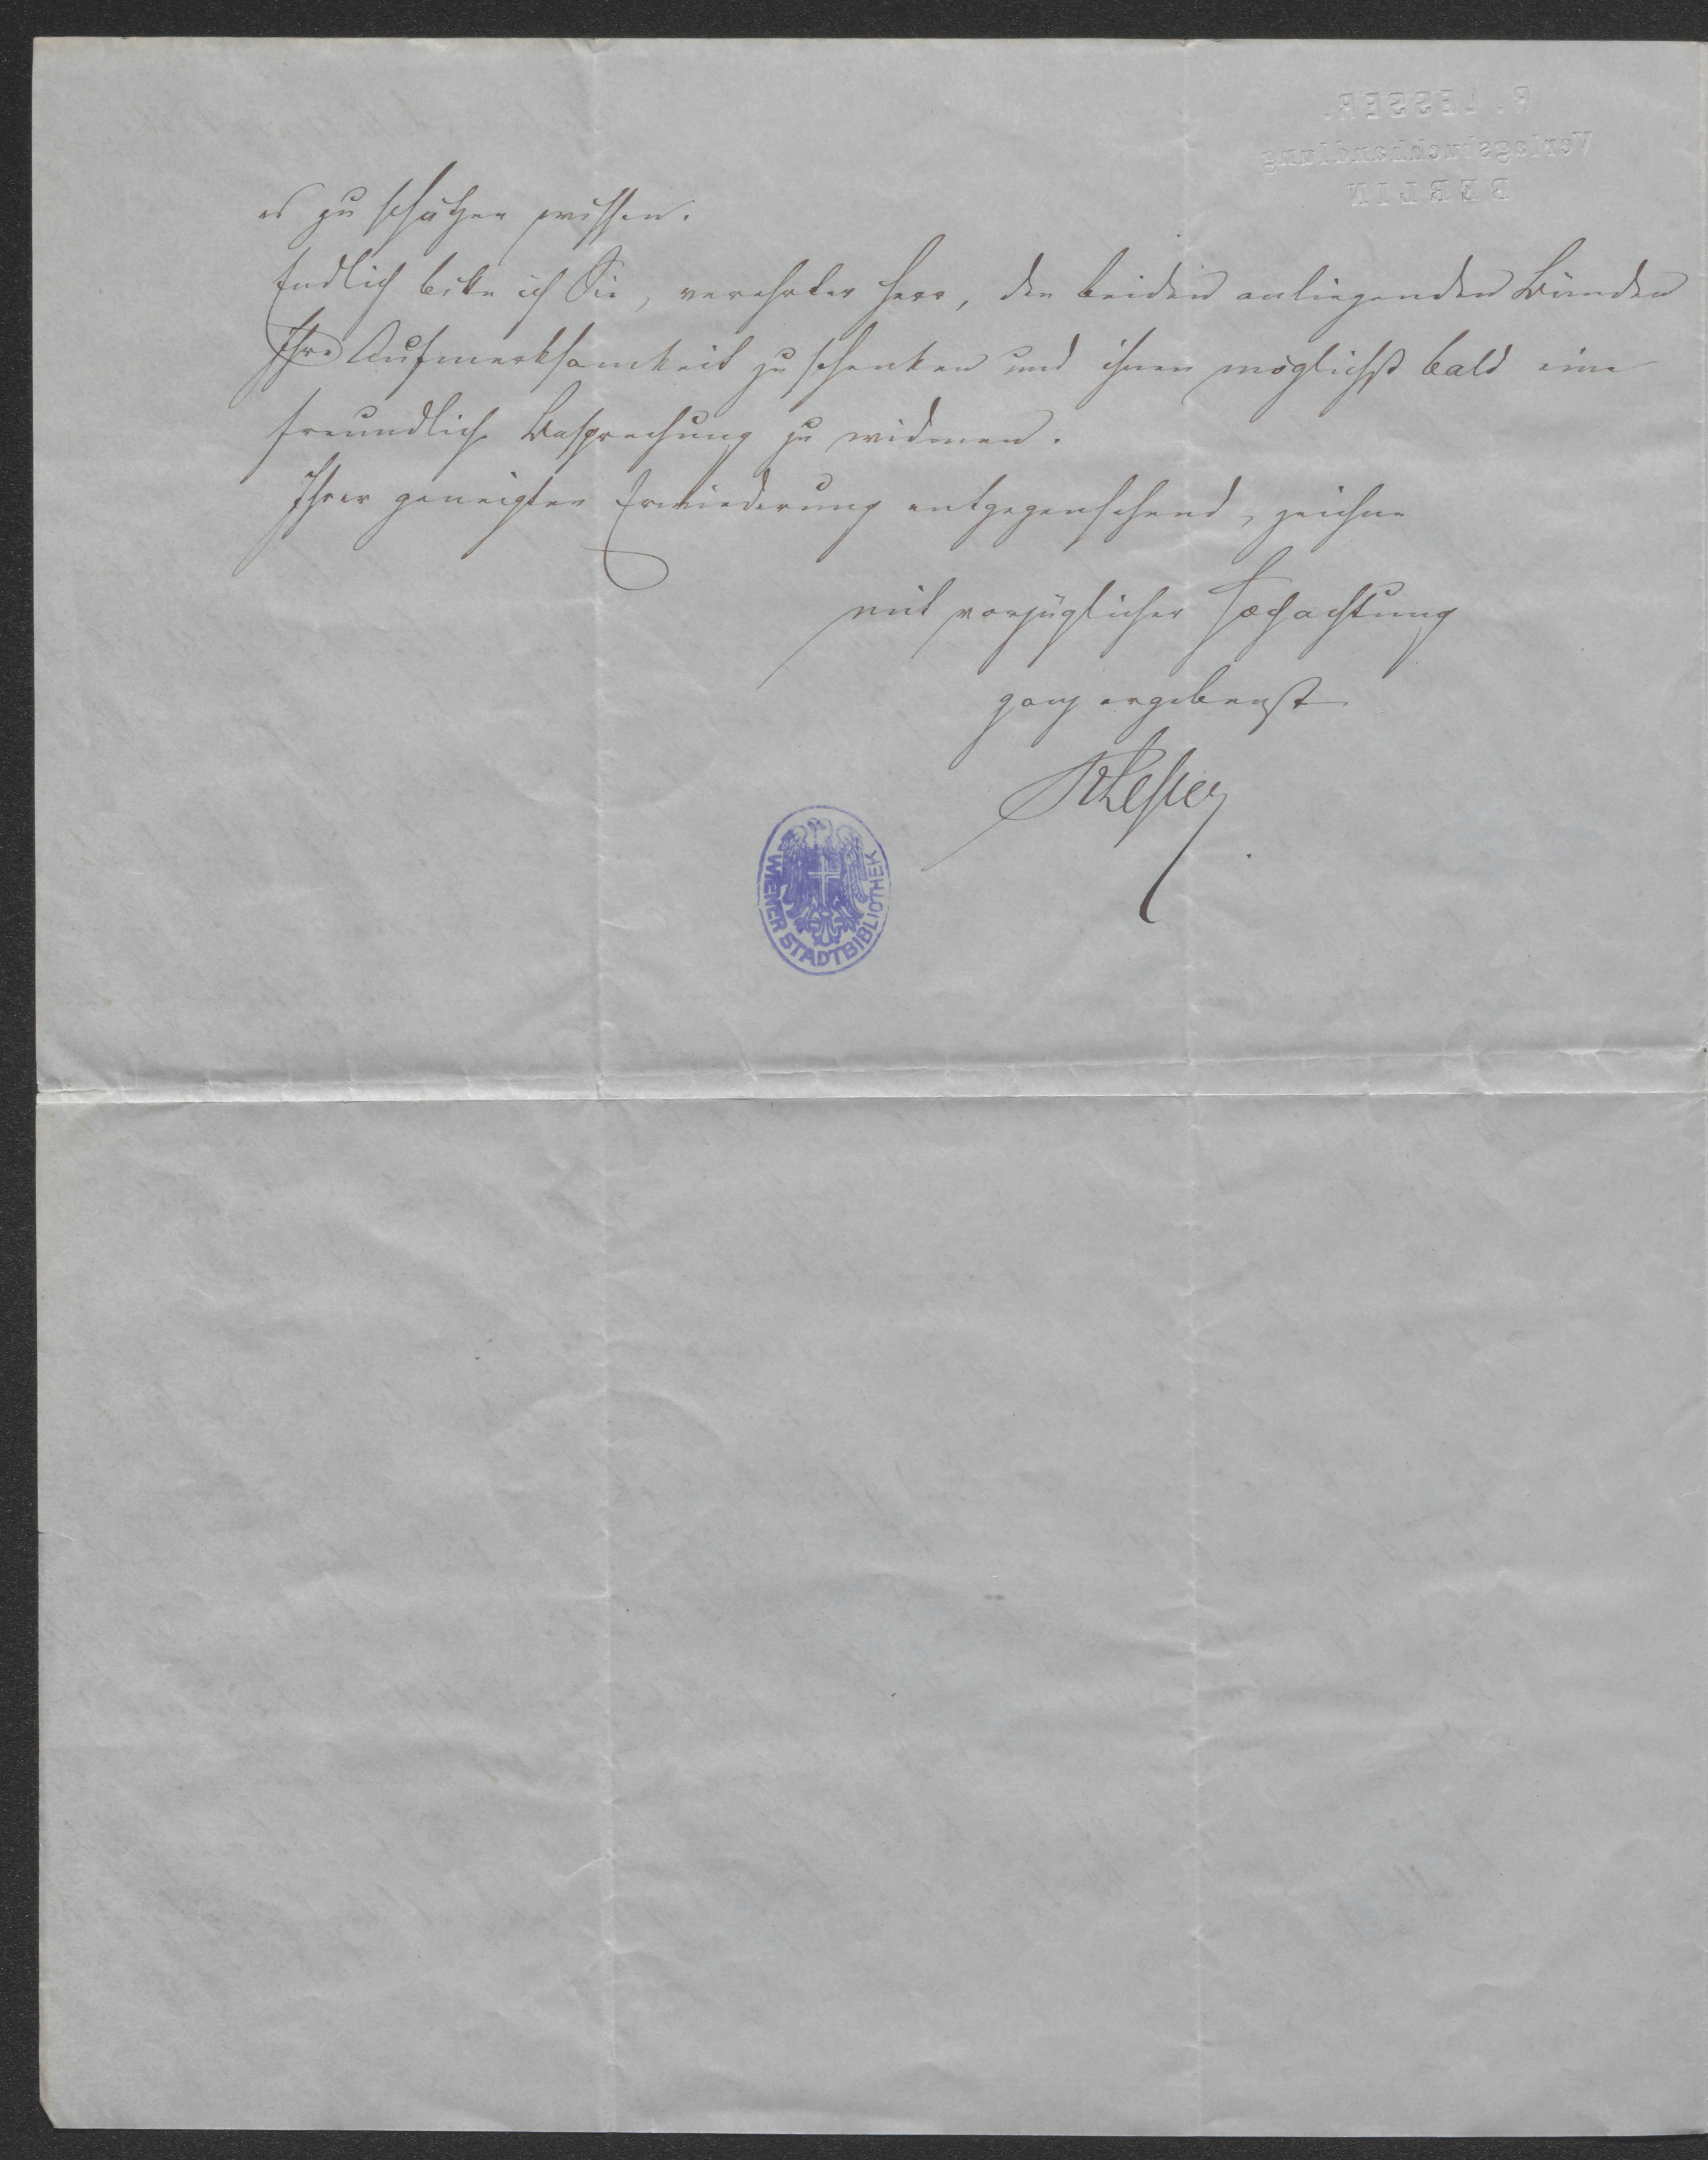 R. LESSER.
Verlagsbuchhandlung
BERLIN
es zu schätzen wissen.
Endlich bitte ich Sie, verehrter Herr, den beiden anliegenden Bänden
Ihre Aufmerksamkeit zu schenken und ihnen möglichst bald eine
freundliche Besprechung zu widmen.
Ihrer geneigten Erwiederung entgegensehend, zeichne
mit vorzüglicher Hochachtung
ganz ergebenst
RLesser
WIENER STADTBIBLIOTHEK